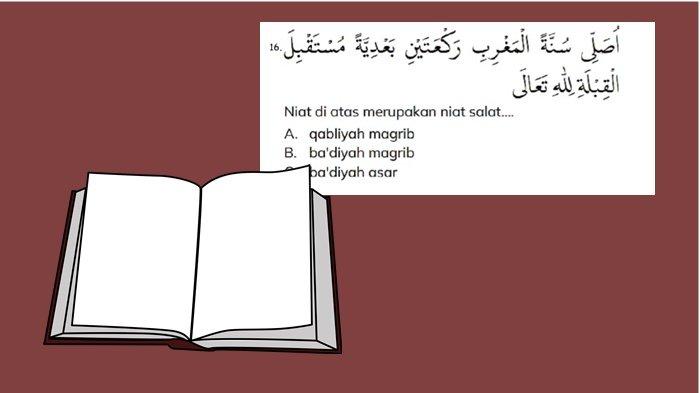 16. اُصَلِّى سُنَّةً الْمَغْرِبِ رَكْعَتَيْنِ بَعْدِيَّةً مُسْتَقْبِلَ
الْقِبْلَةِ لِلّٰهِ تَعَالَى
Niat di atas merupakan niat salat....
A. qabliyah magrib
B. ba'diyah magrib
ba'diyah asar